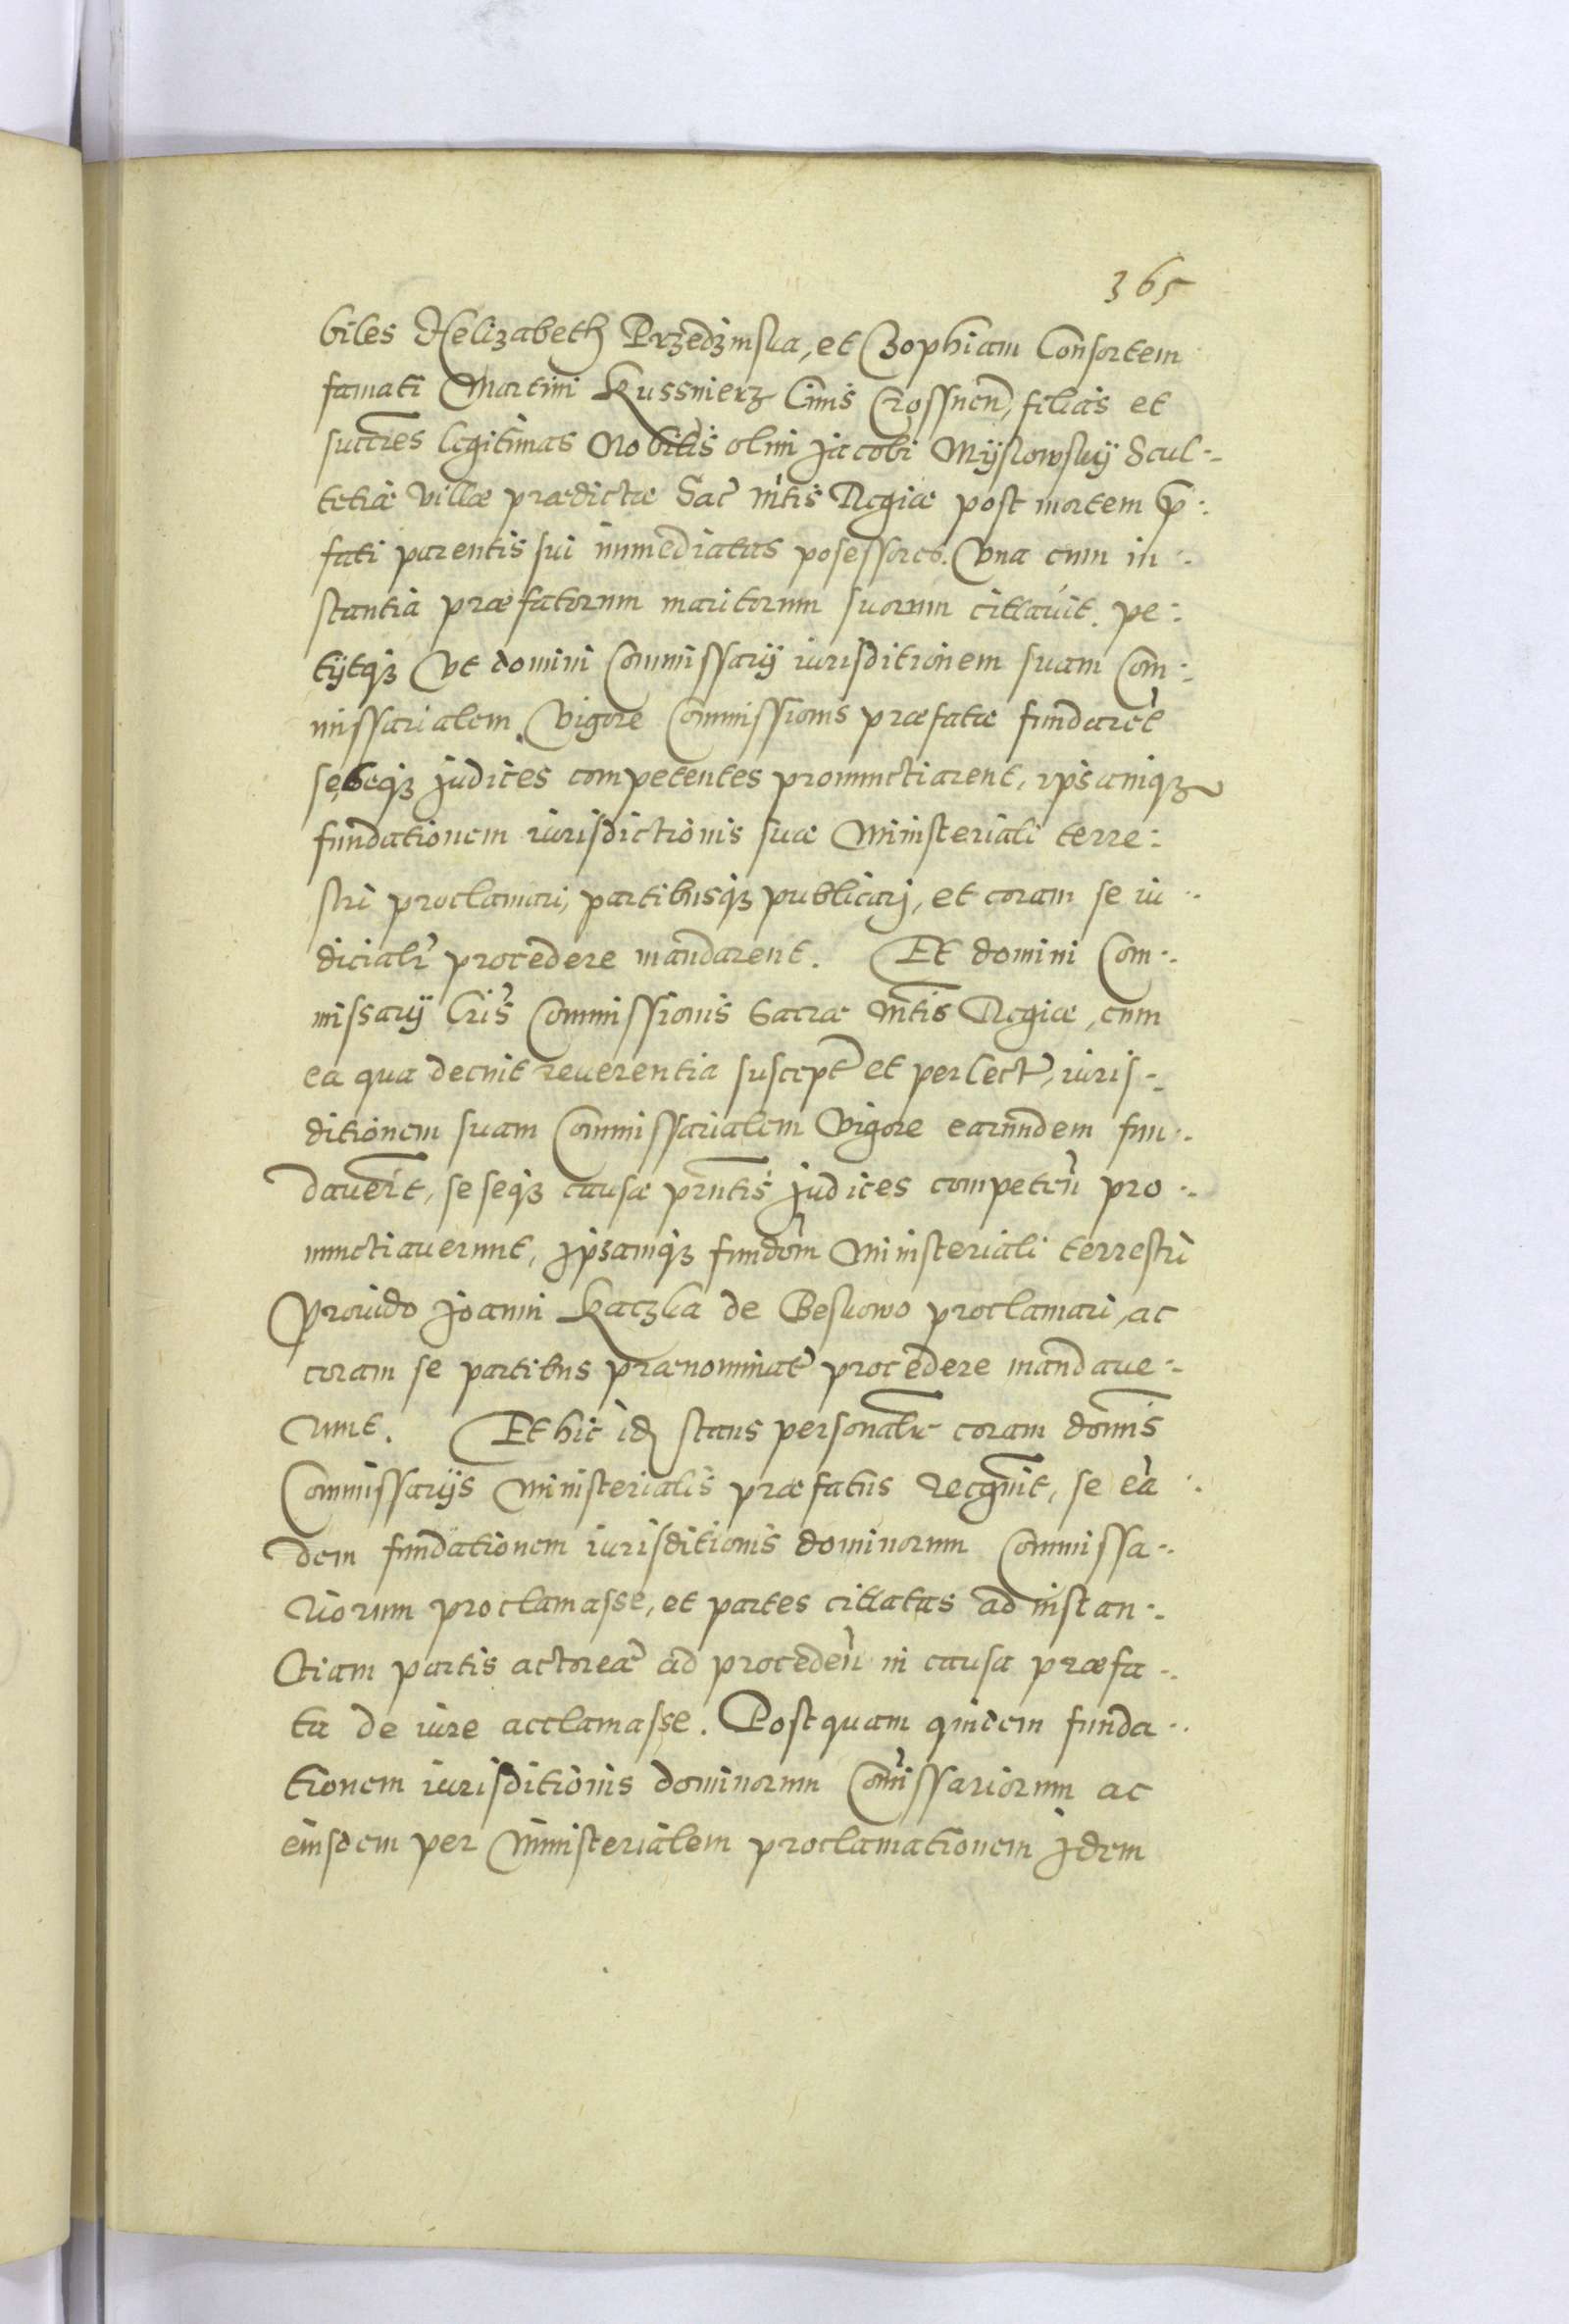 365
biles Helizabeth Przedzinska, et Zophiam Consortem
famati Martini Kussnierz Ciuis Crossnen, filias et
succres legitimas Nobilis olim Jacobi Myslowsky Scul-
tetiæ villæ prædictæ Sac Mtis Regiæ post mortem p:
fati parentis sui immediatas posessores. Vna cum in
stantia præfatorum maritorum suorum cittauit. pe:
tijtqꝫ Vt domini Commissarij iurisditionem suam Com:
missarialem Vigore Commissionis præfatæ fundaret
seseqꝫ judices competentes pronunctiarent, ipsamqꝫ
fundationem iurisdictionis suæ Ministeriali terre:
stri proclamari, partibusqꝫ publicarj, et coram se iu
diciali procedere mandarent. Et domini Com-
missarij Lris Commissionis Sacræ Mtis Regiæ, cum
ea qua decuit reuerentia suscept et perlect, iuris-
ditionem suam Commissarialem Vigore earundem fun-
dauert, seseqꝫ causæ pntis judices competen pro-
nunctiauerunt, Jpsamqꝫ fundom Ministeriali terrestri
Prouido Joanni Kaczka de Beskowo proclamari, ac
coram se partibus prænominat procedere mandaue-
runt. Et hic id stans personalr coram domnis
Commissarijs Ministerialis præfatus recognuit, se ea
dem fundationem iurisditionis dominorum Commissa-
riorum proclamasse, et partes cittatas ad instan-
tiam partis actoreæ ad proceden in causa præfa-
ta de iure acclamasse. Postquam quidem funda-
tionem iurisditionis dominorum Comissariorum ac
eiusdem per Ministerialem proclamationem Jdem